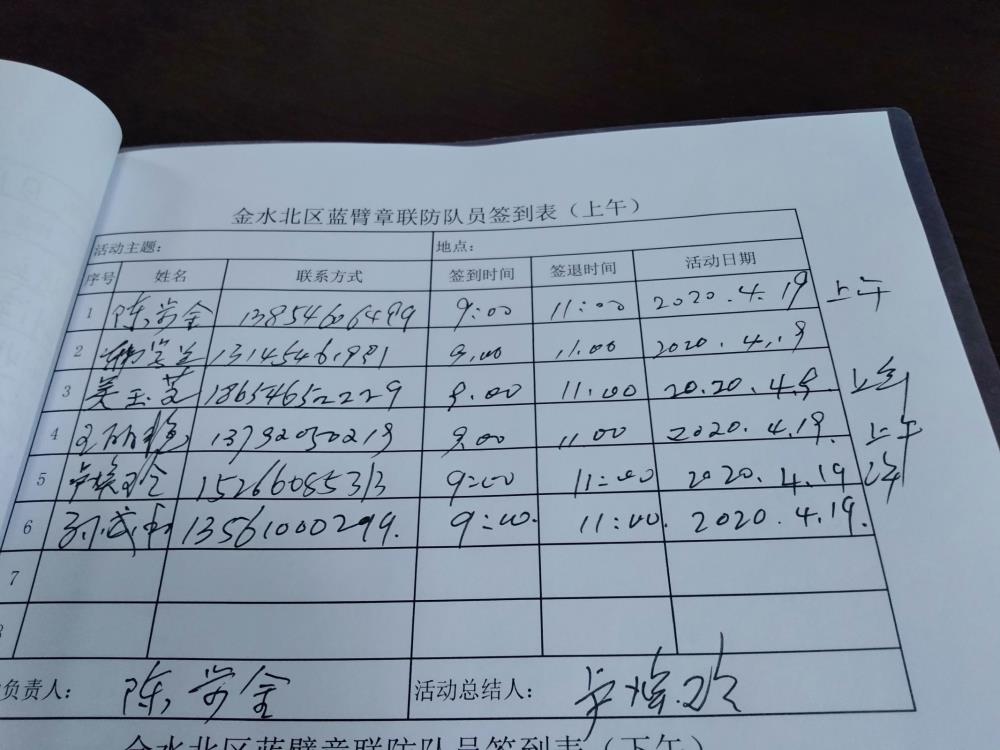 金水北区蓝臂章联防队员签到表（上午）
活动主题： 地点：
序号 姓名 联系方式 签到时间 签退时间 活动日期
1 陈学金 13854606499 9:00 11:00 2020.4.19 上午
2 13145461981 9.00 11.00 2020.4.19
3 姜玉芝 18654652229 9.00 11.00 20.20.4.9 上午
4 13792050219 9.00 11 00 2020.4.19. 上午
5 15266085313 9:00 11:00 2020.4.19 上午
6 13561000299. 9:00. 11:00. 2020.4.19.
7
负责人： 陈学金 活动总结人：
金水北区蓝臂章联防队员签到表（下午）